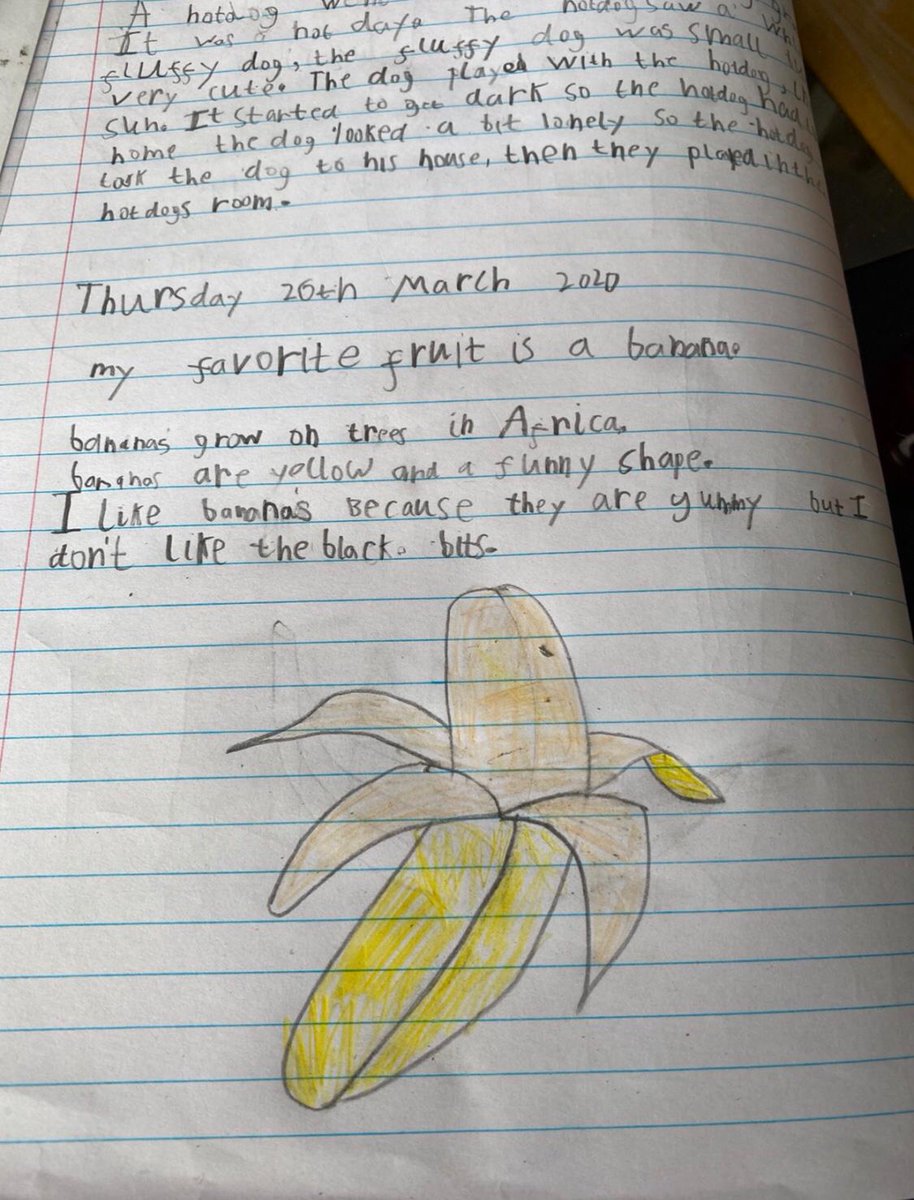 A hotdog
It was a hot daya The hotdog saw a
fluffy dog, the fluffy dog was small
very cute. The dog played with the hotdog,
sun. It started to get dark so the hotdog had
home the dog looked a bit lonely so the hotdog
took the dog to his house, then they played in the
hotdogs room.
Thursday 26th March 2020
my favorite fruit is a banana.
bananas grow on trees in Africa.
bananas are yellow and a funny shape.
I like banana's Because they are yummy but I
don't like the black. bits.